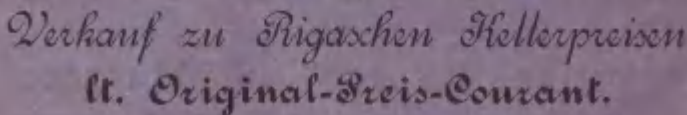 Verkauf zu Rigaschen Kellerpreisen
lt. Original-Preis-Courant.